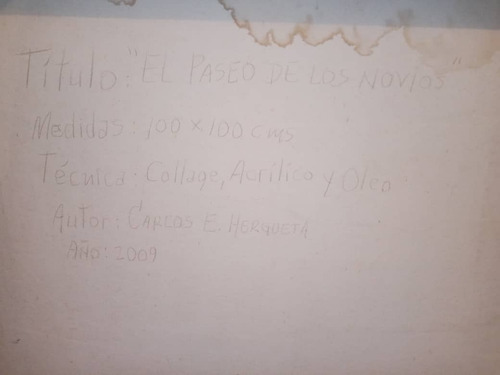 Título: "EL PASEO DE LOS NOVIOS"
Medidas: 100 x 100 cms
Técnica: Collage, Acrílico y Oleo
Autor: CARLOS E. HERQUETA
AÑO: 2009